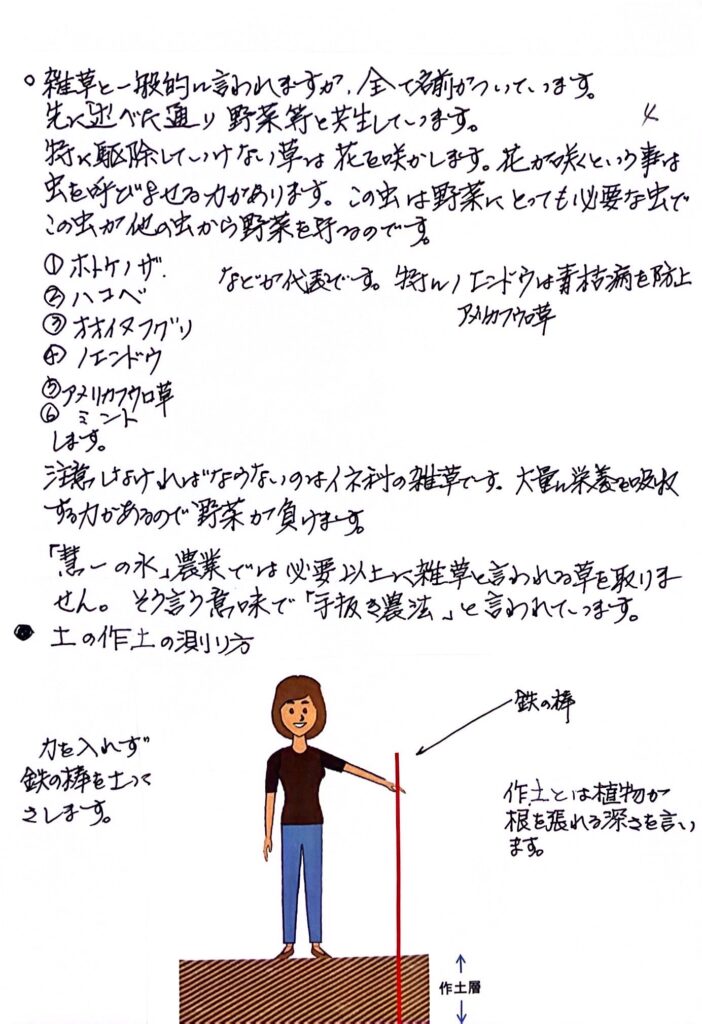 ○ 雑草と一般的に言われますが、全て名前がついています。
先に述べた通り 野菜等と共生しています。
4
特に駆除していけない草は 花を咲かします。花が咲くという事は
虫を呼びよせる力があります。この虫は野菜にとっても必要な虫で
この虫が他の虫から野菜を守るのです。
① ホトケノザ.
などが代表です。特にノエンドウは青枯病を防止
② ハコベ
アメリカフウロ草
③ オオイヌフグリ
④ ノエンドウ
⑤ アメリカフウロ草
⑥ ミント
します。
注意しなければならないのはイネ科の雑草です。大量に栄養を吸収
する力があるので野菜が負けます。
「慧一の水」農業では必要以上に雑草と言われる草を取りま
せん。そう言う意味で「手抜き農法」と言われています。
● 土の作土の測り方
鉄の棒
力を入れず
鉄の棒を土に
さします。
作土とは植物が
根を張れる深さを言い
ます。
作土層